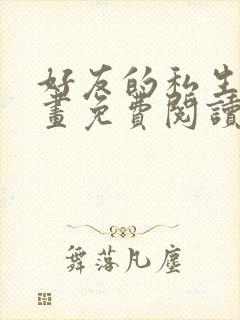 好友的私生
畫免費閱讀
舞落凡塵